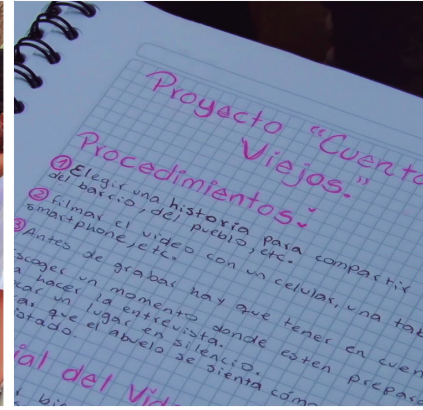 Proyecto "Cuento
Viejos."
Procedimientos:
① Elegir una historia para compartir
del barrio, del pueblo, etc.
② Filmar el video con un celular, una tab
smartphone, etc.
③ Antes de grabar hay que tener en cuen
scoger un momento donde esten prepara
a hacer la entrevista.
car un lugar en silencio.
ar que el abuelo se sienta cómo
stado.
ial del Vid
bi